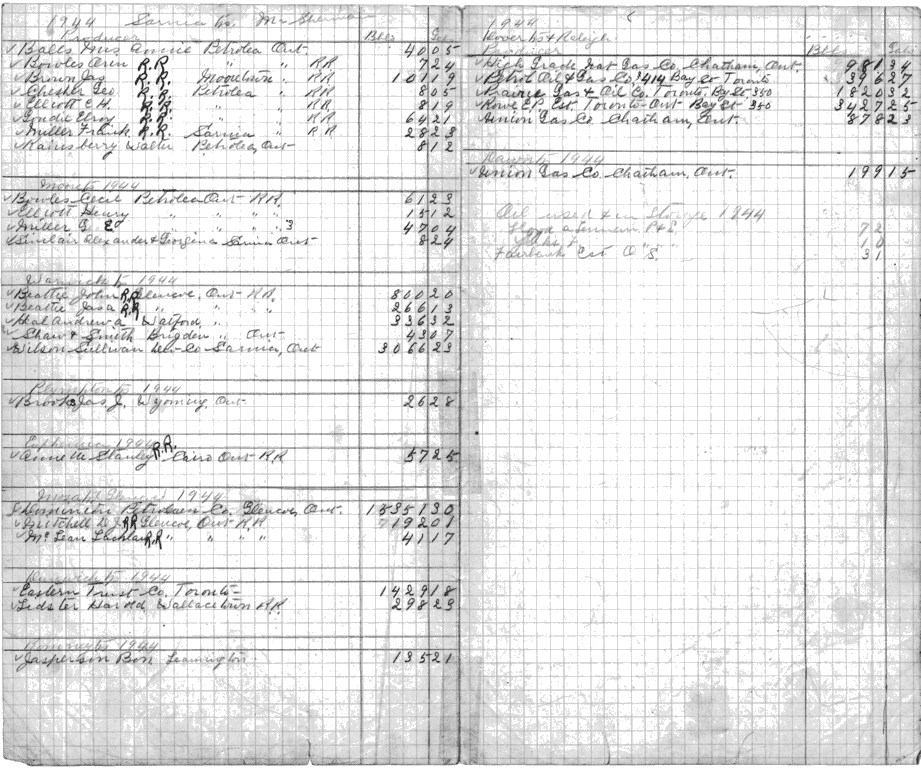 1944 Sarnia
Producer Bbls Gal.
Balls Mrs Annie Petrolea Ont. 4005
Bowles Oren R.R. " " RR 724
Brown Jas R.R. Mooretown " RR 10119
Chester Geo. R.R. Petrolea " RR 805
Elliott C.H. R.R. " " RR 819
Goudie Elroy R.R. " " RR 6421
Miller Frank R.R. Sarnia " RR 2823
Rainsberry Walter Petrolea, Ont 812
Moore tp 1944
Bowles Cecil Petrolea Ont RR. 6123
Elliott Henry " " " " 1512
Miller G. E. " " " " 3 4704
Sinclair Alexander & Georgina Sarnia Ont 824
Warwick tp 1944
Beattie John R.R. Glencoe, Ont RR. 80020
Beattie Jas a R.R. " " " " 26613
Hal Andrew a Watford, " 33632
Shaw & Smith Brigden " Ont 4307
Wilson Sullivan Co Sarnia, Ont 306623
Plympton tp 1944
Brooks Jas J. Wyoming, Ont 2628
Euphemia 1944
Anne M Stanley R.R. Cairo Ont RR 5725
Mosa 1944
Dominion Petroleum Co. Glencoe, Ont. 1535130
Mitchell D.J. RR Glencoe, Ont RR 719201
McLean Lachlan RR " " " " 4117
Dunwich tp 1944
Eastern Trust Co, Toronto 142918
Lidster Harold Wallacetown RR. 29823
Romney tp 1944
Jasperson Bon Leamington 13521
1944
Dover tp & Raleigh
Producer Bbls Gals
High Grade Nat Gas Co, Chatham, Ont. 98134
Petrol Oil & Gas Co, 414 Bay St Toronto 39627
Prairie Gas & Oil Co, Toronto, Bay St 350 182032
Rowe E.P. Est. Toronto Ont Bay St 350 342725
Union Gas Co Chatham, Ont. 87823
Dawn tp 1944
Union Gas Co. Chatham, Ont. 19915
Oil used & in Storage 1944
Lloyd 72
10
Fairbank Est O.S. 31